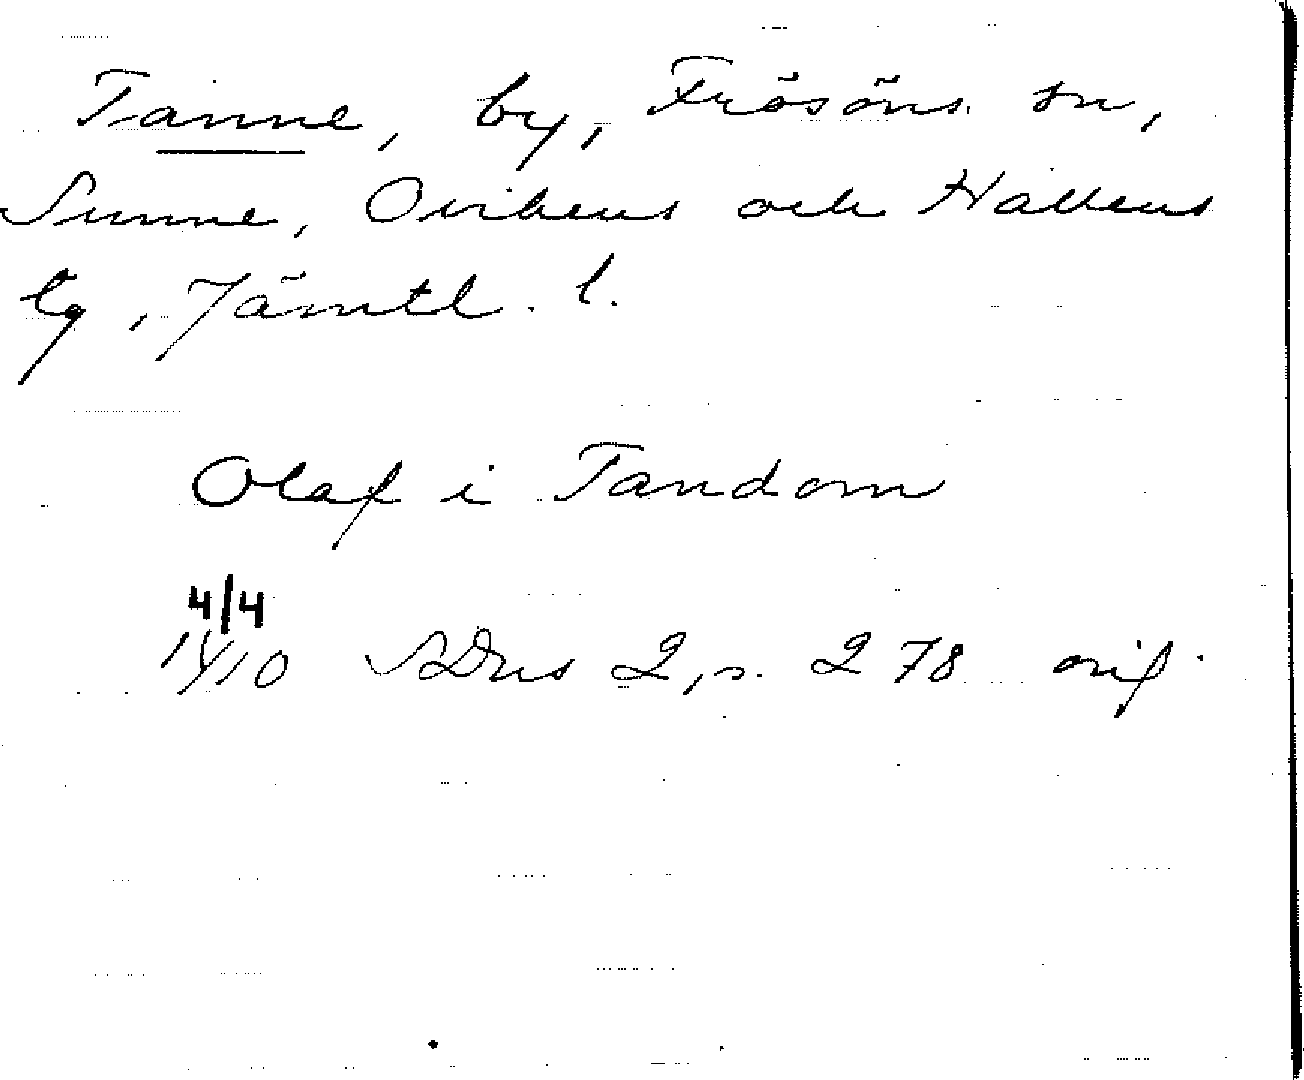 Tanne, by, Frösöns sn,
Sunne, Ovikens och Hallens
tg, Jämtl. l.
Olaf i Tandom
4/4
1410 SDns 2, s. 278 orif.